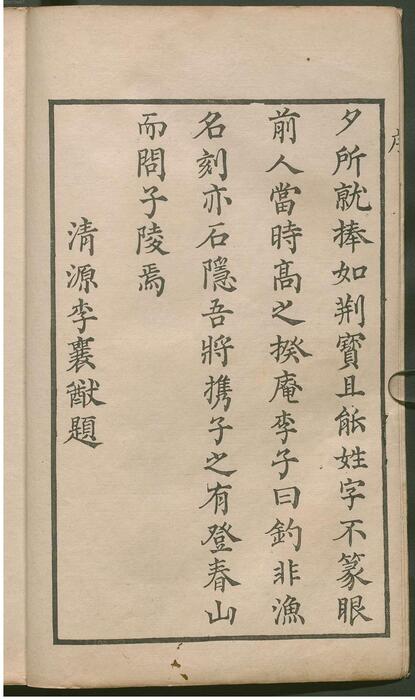 夕所就捧如荆寶且能姓字不篆眼
前人當時高之揆庵李子曰釣非漁
名刻亦石隱吾將携子之有登春山
而問子陵焉
清源李襄猷題